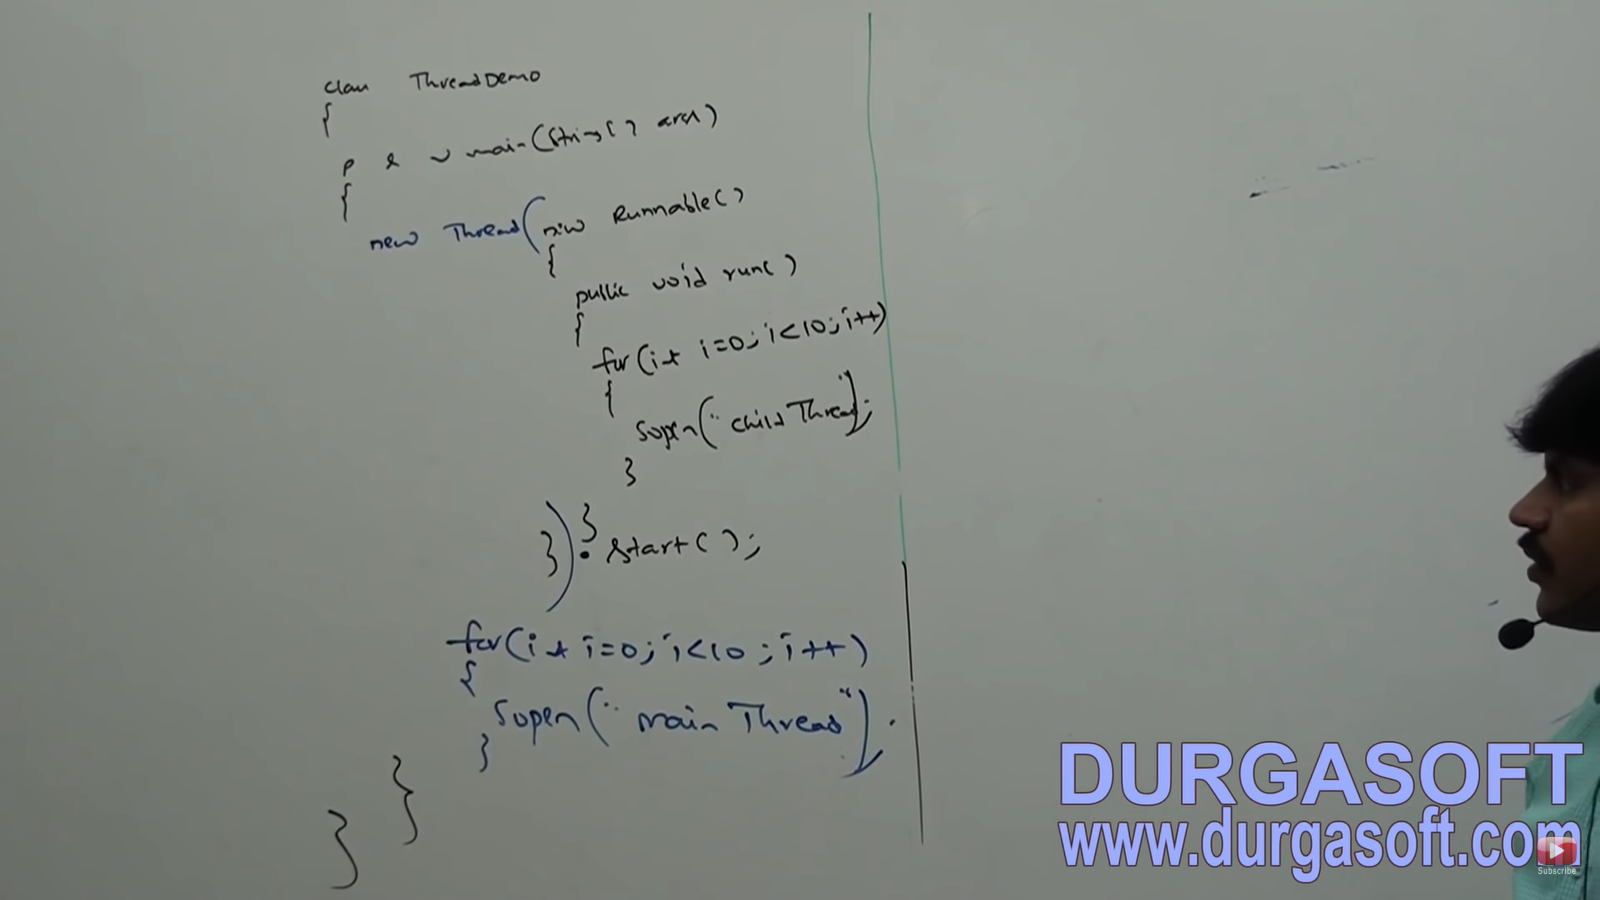 class ThreadDemo
{
p s v main(String[] args)
{
new Thread(new Runnable()
{
public void run()
{
for(int i=0; i<10; i++)
{
Sopln("child Thread");
}
}
}).start();
for(int i=0; i<10; i++)
{
Sopln("main Thread");
}
}
}
DURGASOFT
www.durgasoft.com
Subscribe